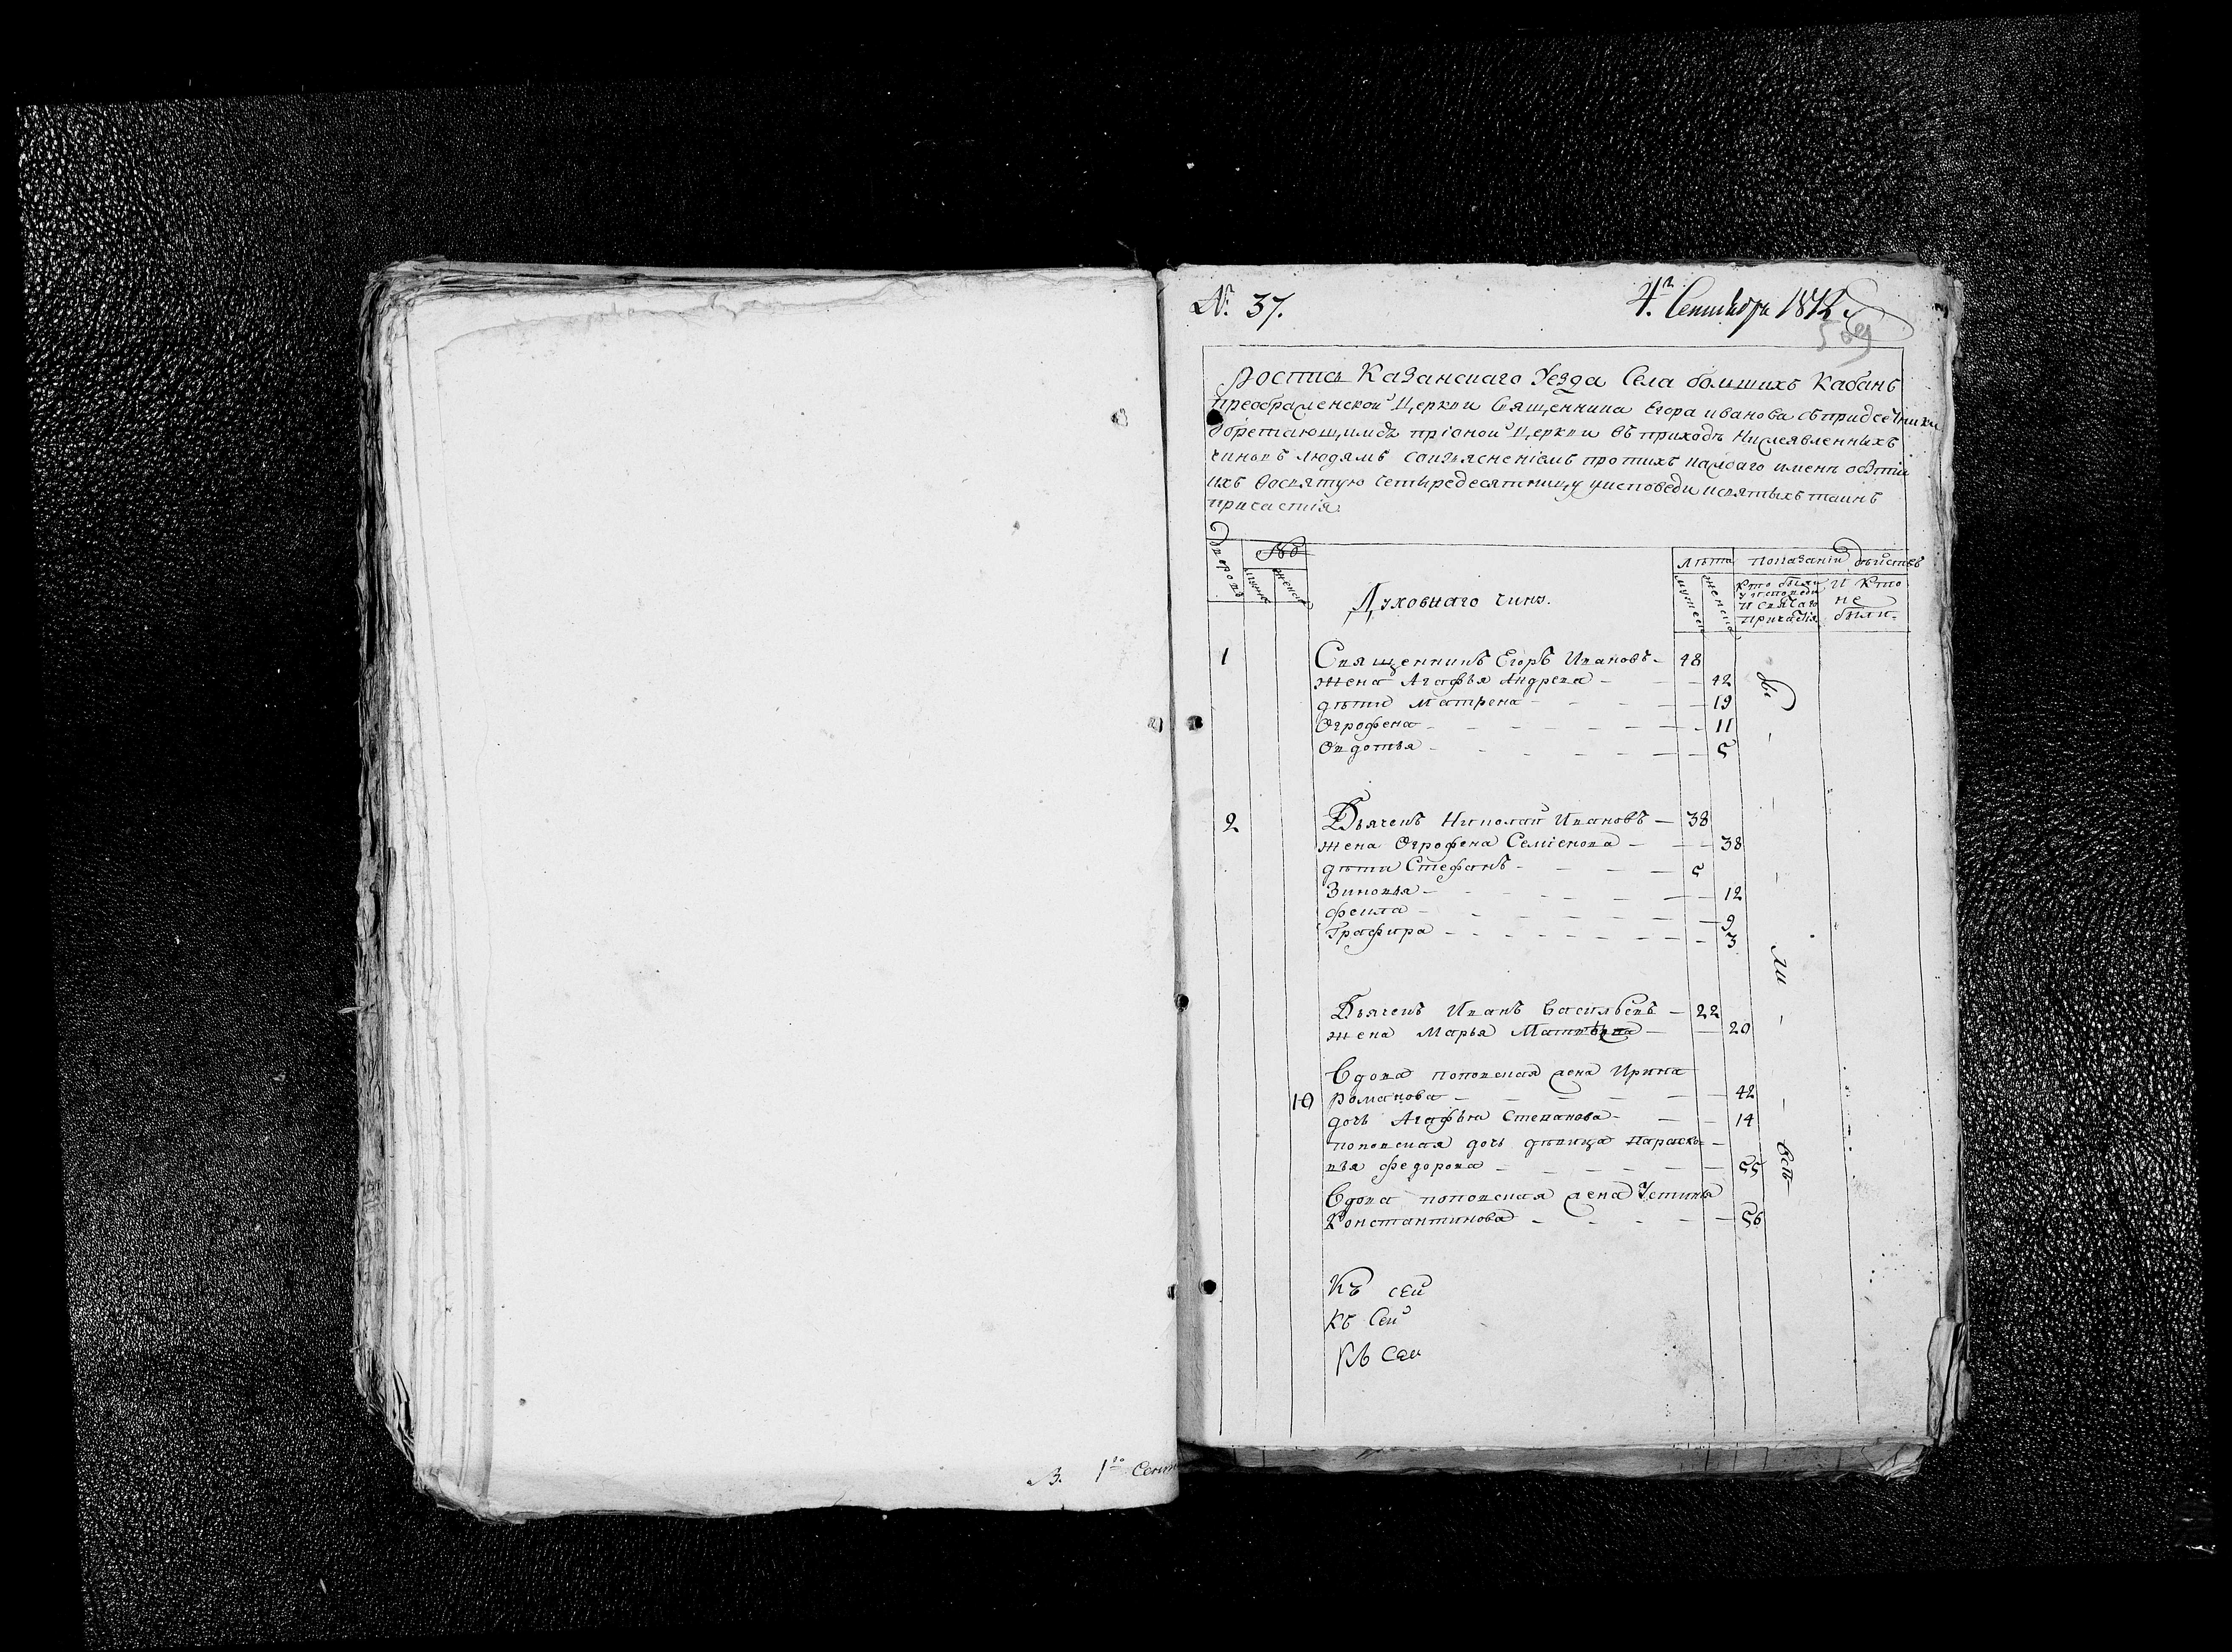 № 37.
4. Сентября 1812
Роспись Казанскаго Уезда Села болшихъ Кабанъ
преображенской Церкви Священника Егора иванова съпридсечники
обретающимся прионой Церкви въ приходъ нижеявленныхъ
чиновъ людямъ соизъясненіемъ противъ каждаго имени обытіи
ихъ восвятую четыредесятницу уисповеди исвятыхъ таинъ
причастія.
Духовнаго чина.
лѣта
мужеска
женска
показаніи дѣйствъ
Кто были
у исповеди
И святаго
причастія
И Кто
не
были.
1 Священникъ Егоръ Ивановъ 48
жена Агафья Андрева 42
дѣти Матрена 19
Огрофена 11
Овдотья 5
2 Дьячекъ Николай Ивановъ 38
жена Огрофена Семіенова 38
дѣти Стефанъ 5
Зиновья 12
Фекла 9
Графира 3
Дьячекъ Иванъ Васильевъ 22
жена Марья Матвѣева 20
Вдова поповская жена Ирина
10 Романова 42
дочь Агафья Степанова 14
поповская дочь девица Параско-
вья Федорова 55
Вдова поповская жена Устинья
Константинова 56
бы - ли всѣ
Къ сей
Къ Сей
Къ Сей